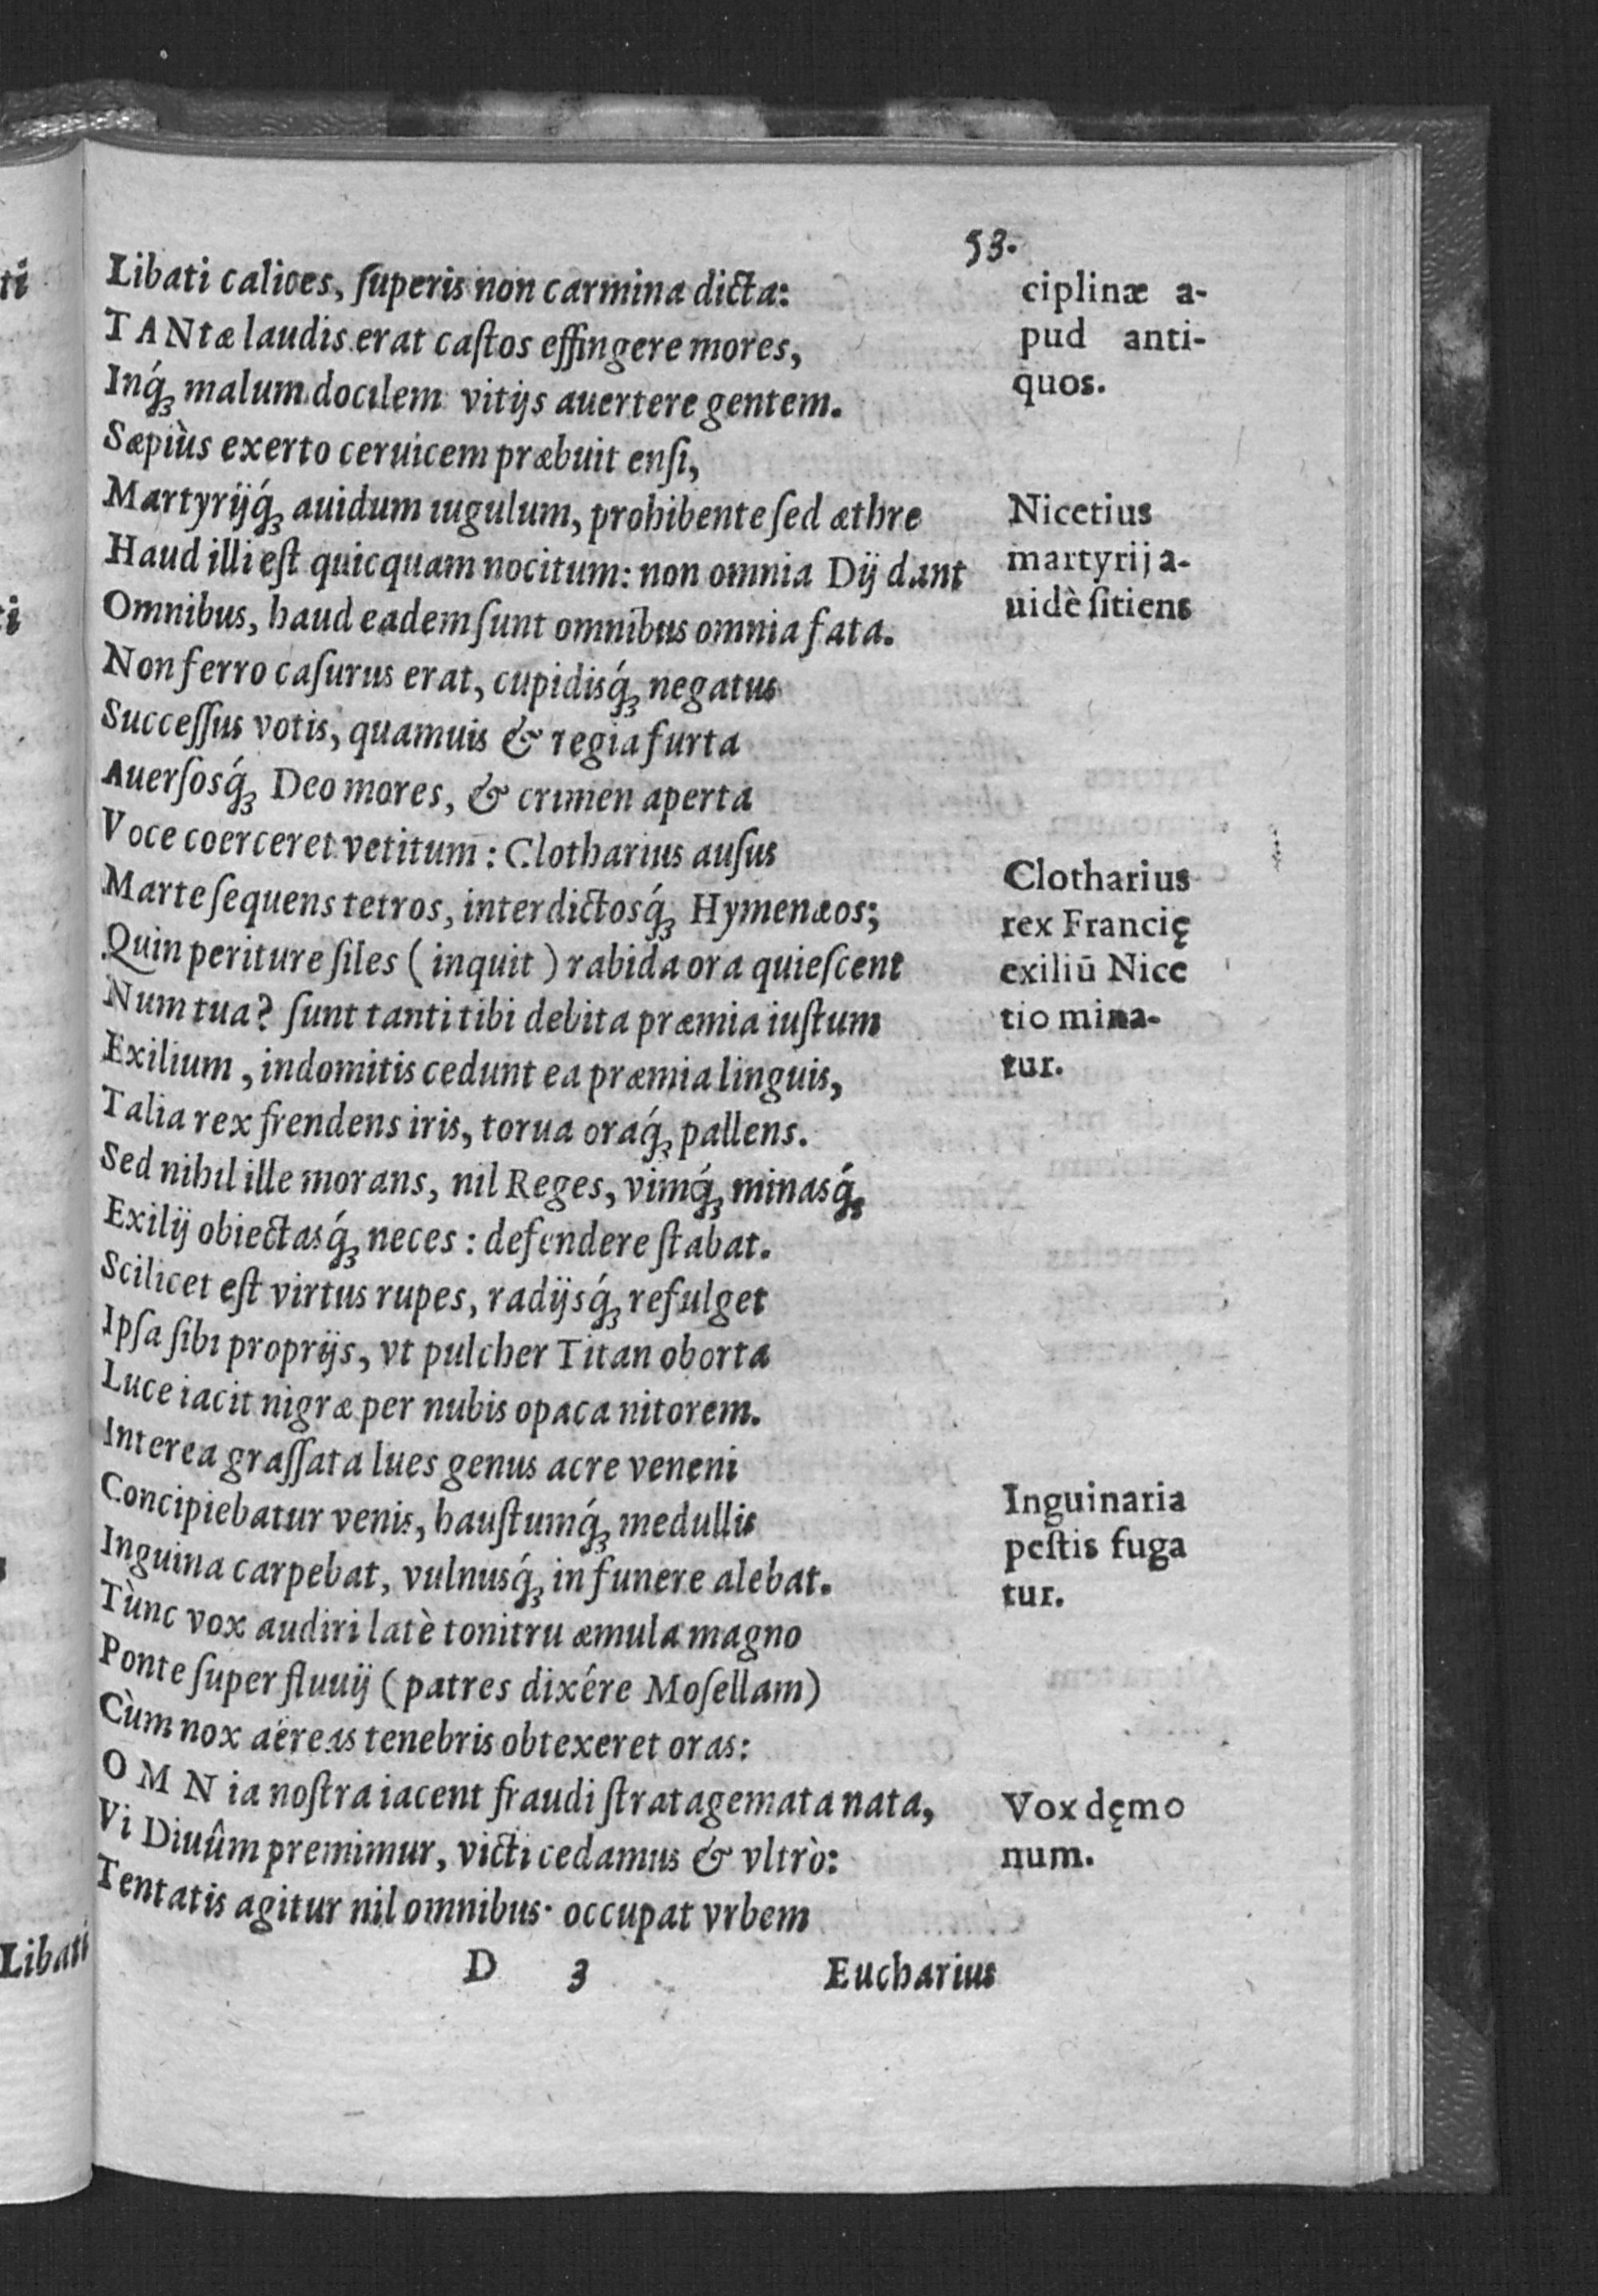 53.
Libati calices, ſuperis non carmina dicta:
TANtæ laudis erat caſtos effingere mores,
Inq́ꝫ malum docilem vitijs auertere gentem.
Sæpiùs exerto ceruicem præbuit enſi,
Martyrijq́ꝫ auidum iugulum, prohibente ſed æthre
Haud illi eſt quicquam nocitum: non omnia Dij dant
Omnibus, haud eadem ſunt omnibus omnia fata.
Non ferro caſurus erat, cupidisq́ꝫ negatus
Succeſſus votis, quamuis & regia furta
Auerſosq́ꝫ Deo mores, & crimen aperta
Voce coerceret vetitum: Clotharius auſus
Marte ſequens tetros, interdictosq́ꝫ Hymenæos;
Quin periture ſiles (inquit) rabida ora quieſcent
Num tua? ſunt tanti tibi debita præmia iuſtum
Exilium, indomitis cedunt ea præmia linguis,
Talia rex frendens iris, torua oraq́ꝫ pallens.
Sed nihil ille morans, nil Reges, vimq́ꝫ minasq́ꝫ
Exilij obiectasq́ꝫ neces: defendere ſtabat.
Scilicet eſt virtus rupes, radijsq́ꝫ refulget
Ipſa ſibi proprijs, vt pulcher Titan oborta
Luce iacit nigræ per nubis opaca nitorem.
Interea graſſata lues genus acre veneni
Concipiebatur venis, hauſtumq́ꝫ medullis
Inguina carpebat, vulnusq́ꝫ in funere alebat.
Tùnc vox audiri latè tonitru æmula magno
Ponte ſuper fluuij (patres dixére Moſellam)
Cùm nox aëreas tenebris obtexeret oras:
OMNia noſtra iacent fraudi ſtratagemata nata,
Vi Diuûm premimur, victi cedamus & vltrò:
Tentatis agitur nil omnibus· occupat vrbem
D 3 Eucharius
ciplinæ a-
pud anti-
quos.
Nicetius
martyrij a-
uidè ſitiens
Clotharius
rex Francię
exiliū Nice
tio mina-
tur.
Inguinaria
peſtis fuga
tur.
Vox dęmo
num.
ti
ti
Libati